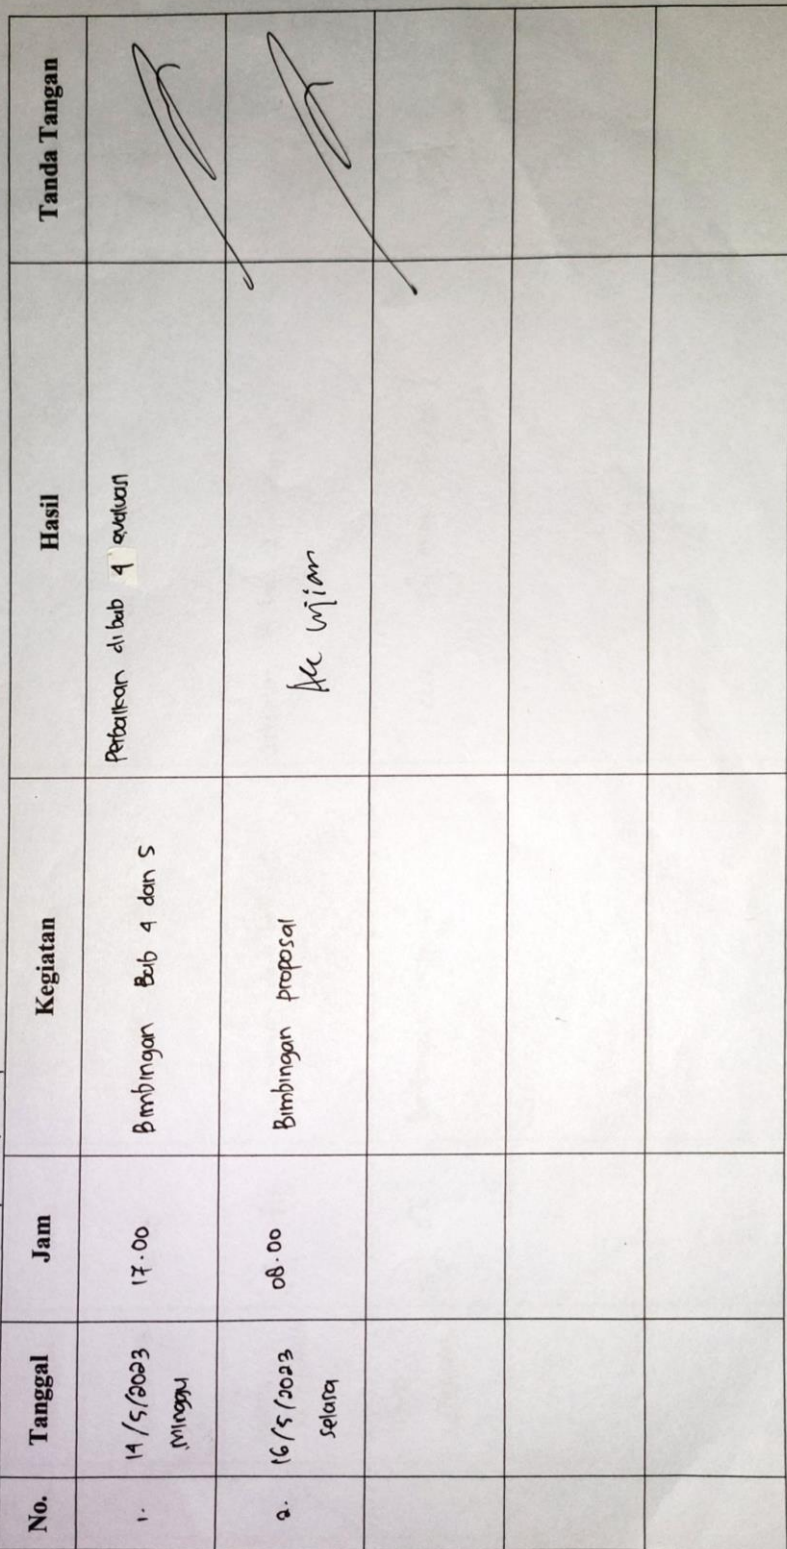 No. Tanggal Jam Kegiatan Hasil Tanda Tangan
1. 14/5/2023 17.00 Bimbingan Bab 4 dan 5 Perbaikan di bab 4 evaluasi
Minggu
2. 16/5/2023 08.00 Bimbingan proposal Acc ujian
selasa